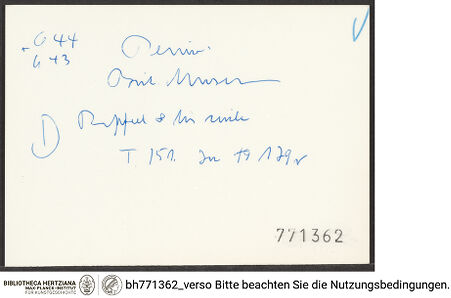 G 44
G 43
Perino
Brit Museum
Raphael & his circle
T. 151.
771362
BIBLIOTHECA HERTZIANA
MAX-PLANCK-INSTITUT
FÜR KUNSTGESCHICHTE
bh771362_verso Bitte beachten Sie die Nutzungsbedingungen.